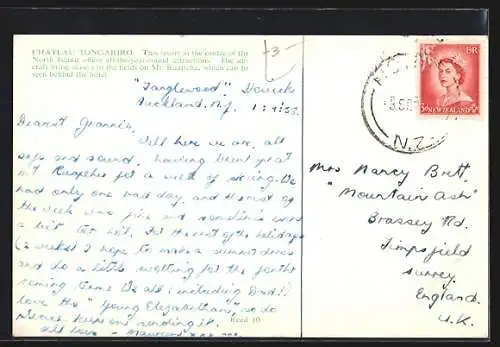 CHATEAU TONGARIRO. This resort in the centre of the
North Island offers all-the-year-round attractions. The air-
craft bring skiers to the fields on Mt. Ruapehu, which can be
seen behind the hotel.
-3-
"Tanglewood" Howick
Auckland, N.Z. 1.9.53.
Dearest Grannie,
Well here we are, all
safe and sound, having been up at
Mt Ruapehu for a week of skiing. We
had only one bad day, and the rest of
the week was fine and sometimes even
a bit too hot. For the rest of the holidays
(2 weeks) I hope to make a summer dress
and do a little for the
coming term. We all (including Dad!)
love the "Young Elizabethan", so do
please keep on sending it.
All love - Maureen xxx
Reed 10
N.Z.
E R
3d
Mrs Nancy Brett,
"Mountain Ash"
Brassey Rd.
Limpsfield
Surrey.
England.
U.K.